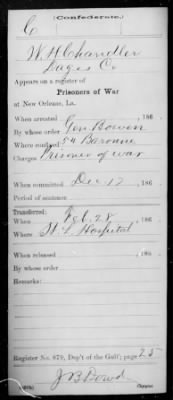 (Confederate.)
C
W. H. Chandler
Dages Co
Appears on a register of
Prisoners of War
at New Orleans, La.
When arrested , 186
By whose order Gen Bowen
Where confined 54 Baronne
Charges Prisoner of war
When committed Dec 17 , 186
Period of sentence
Transferred:
When Feb. 28 , 186
Where St. L. Hospital
When released , 186
By whose order
Remarks:
Register No. 879, Dep't of the Gulf; page 25
J B Dowd
Copyist.